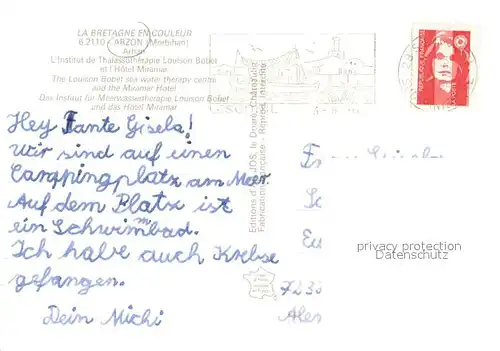 LA BRETAGNE EN COULEUR
6.2110 - ARZON (Morbihan)
Arzon
L'Institut de Thalassothérapie Louison Bobet
et l'Hôtel Miramar
The Louison Bobet sea water therapy centre
and the Miramar Hotel
Das Institut für Meerwassertherapie Louison Bobet
und das Hotel Miramar
REPUBLIQUE FRANÇAISE
LA POSTE
Hey Tante Gisela!
Wir sind auf einen
Campingplatz am Meer.
Auf dem Platz ist
ein Schwimmbad.
Ich habe auch Krebse
gefangen.
Dein Michi
Editions d'Art JOS, le Doaré, Châteaulin
Fabrication Française - Reprod. Interdite
privacy protection
Datenschutz